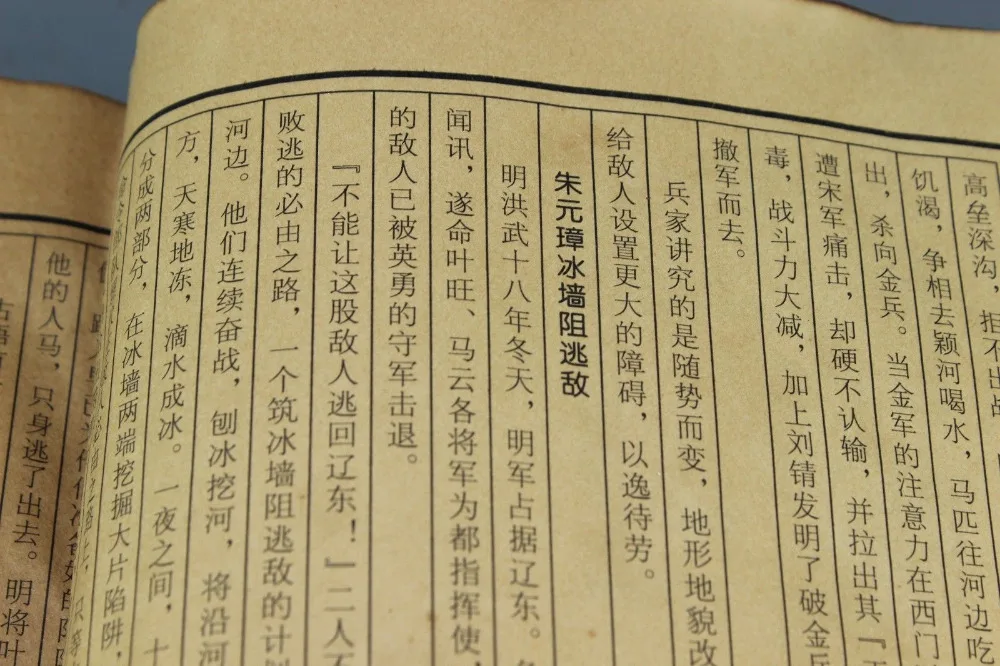 高垒深沟，拒不出战
饥渴，争相去颍河喝水，马匹往河边吃
出，杀向金兵。当金军的注意力在西门
遭宋军痛击，却硬不认输，并拉出其『
毒，战斗力大减，加上刘锜发明了破金兵
撤军而去。
兵家讲究的是随势而变，地形地貌改
给敌人设置更大的障碍，以逸待劳。
朱元璋冰墙阻逃敌
明洪武十八年冬天，明军占据辽东。
闻讯，遂命叶旺、马云各将军为都指挥使，
的敌人已被英勇的守军击退。
『不能让这股敌人逃回辽东！』二人
败逃的必由之路，一个筑冰墙阻逃敌的计
河边。他们连续奋战，刨冰挖河，将沿河
方，天寒地冻，滴水成冰。一夜之间，
分成两部分，在冰墙两端挖掘大片陷阱，
他的人马，只身逃了出去。明将叶